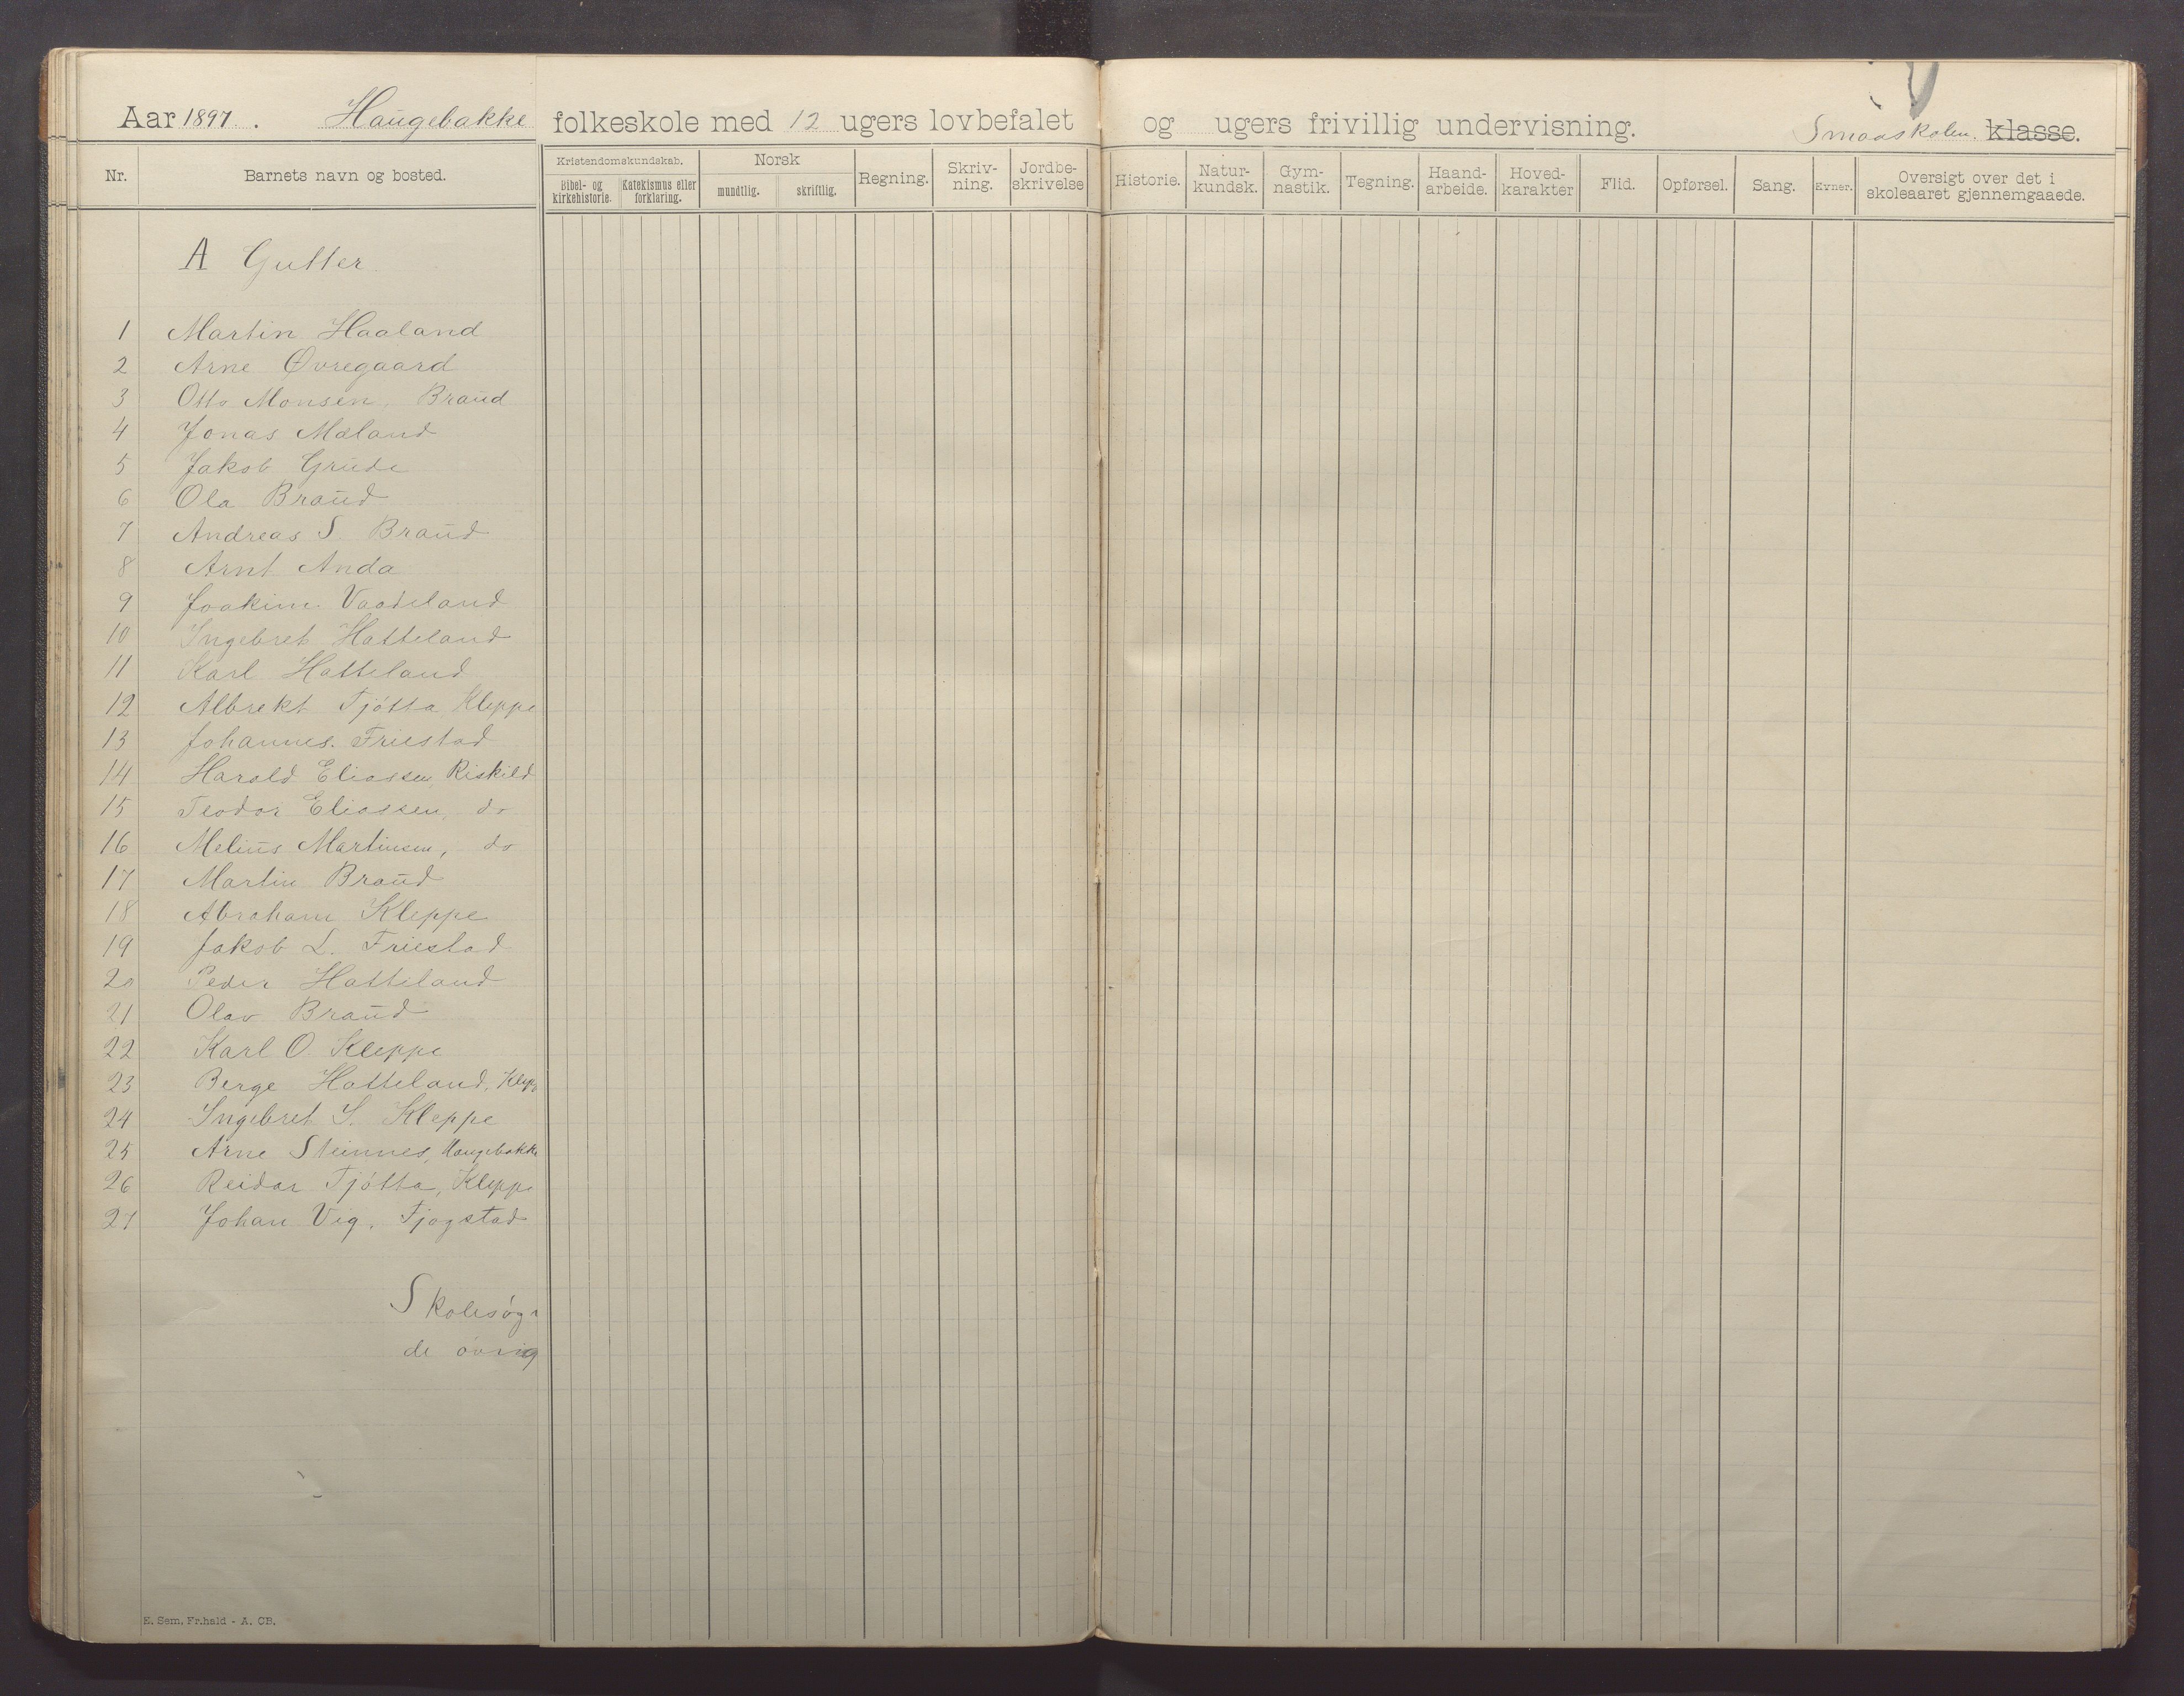 Aar 1897. Haugebakke folkeskole med 12 ugers lovbefalet og ugers frivillig undervisning. Smaaskolen. klasse.
Nr. Barnets navn og bosted. Kristendomskundskab. Bibel- og kirkehistorie. Katekismus eller forklaring. Norsk mundtlig. skriftlig. Regning. Skriv-ning. Jordbe-skrivelse Historie. Natur-kundsk. Gym-nastik. Tegning. Haand-arbeide. Hoved-karakter Flid. Opførsel. Sang. Evner. Oversigt over det i skoleaaret gjennemgaaede.
A Gutter
1 Martin Haaland
2 Arne Øvregaard
3 Otto Monsen, Braud
4 Jonas Mæland
5 Jakob Grude
6 Ola Braud
7 Andreas S. Braud
8 Arnt Anda
9 Joakim Vaadeland
10 Ingebret Hatteland
11 Karl Hatteland
12 Albrekt Tjøtta Kleppe
13 Johannes. Friestad
14 Harald Eliassen, Riskild
15 Teodor Eliassen, do
16 Melius Martinsen, do
17 Martin Braud
18 Abraham Kleppe
19 Jakob L. Friestad
20 Peder Hatteland
21 Olav Braud
22 Karl O. Kleppe
23 Berge Hatteland, Klepp
24 Ingebret S. Kleppe
25 Arne Steinnes, Haugebakke
26 Reidar Tjøtta, Kleppe
27 Johan Vig. Tjogstad
Skolesøg
de øvrig
E. Sem, Fr.hald - A. CB.